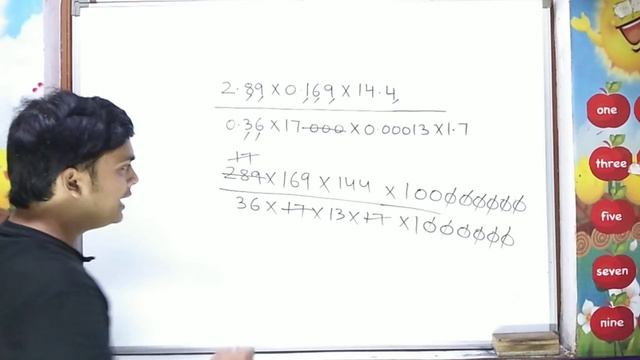 2.89 × 0.169 × 14.4
0.36 × 17.000 × 0.00013 × 1.7
17
289 × 169 × 144 × 100000000
36 × 17 × 13 × 17 × 1000000
one
three
five
seven
nine